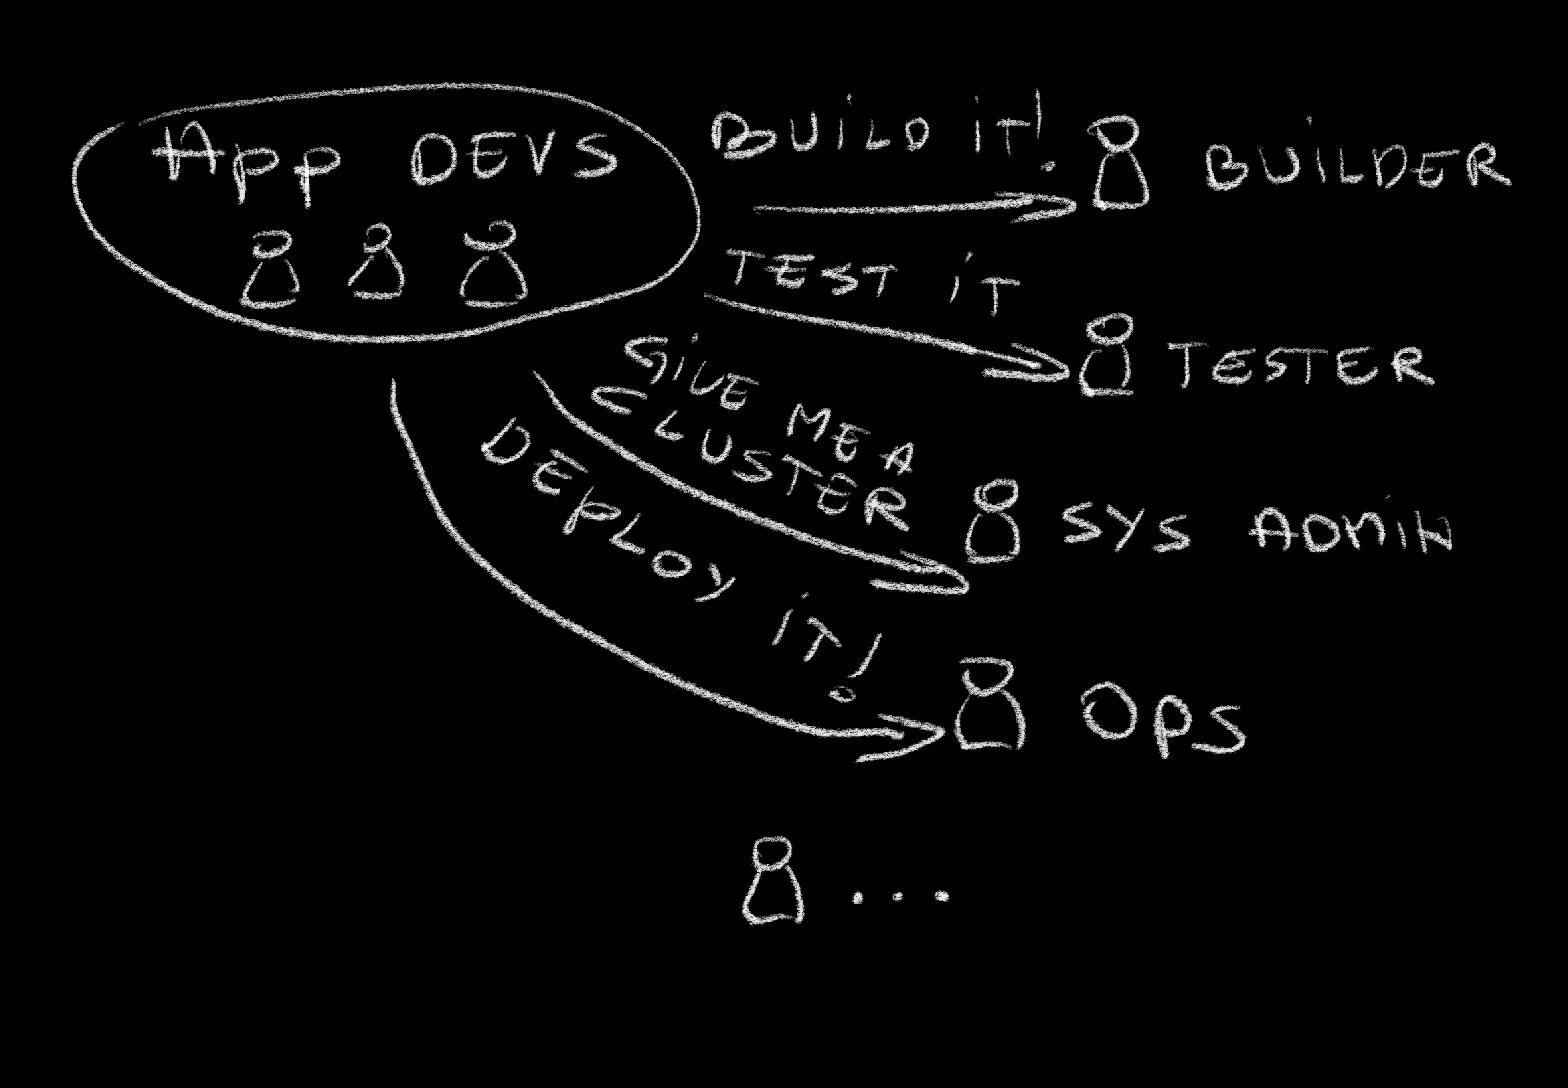 App DEVS
BUiLD iT!
BUiLDER
TEST iT
TESTER
GiVE ME A
CLUSTER
SYS ADMiN
DEPLOY iT!
OPS
...